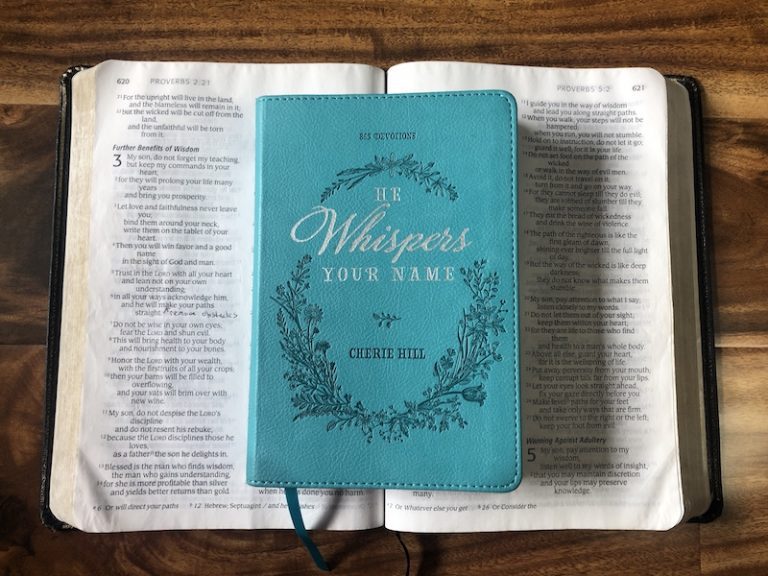 620 PROVERBS 2:21
21 For the upright will live in the land,
and the blameless will remain in it;
22 but the wicked will be cut off from the
land,
and the unfaithful will be torn
from it.
Further Benefits of Wisdom
3 My son, do not forget my teaching,
but keep my commands in your
heart,
2 for they will prolong your life many
years
and bring you prosperity.
3 Let love and faithfulness never leave
you;
bind them around your neck,
write them on the tablet of your
heart.
4 Then you will win favor and a good
name
in the sight of God and man.
5 Trust in the LORD with all your heart
and lean not on your own
understanding;
6 in all your ways acknowledge him,
and he will make your paths
straight. remove obstacles
7 Do not be wise in your own eyes;
fear the LORD and shun evil.
8 This will bring health to your body
and nourishment to your bones.
9 Honor the LORD with your wealth,
with the firstfruits of all your crops;
10 then your barns will be filled to
overflowing,
and your vats will brim over with
new wine.
11 My son, do not despise the LORD's
discipline
and do not resent his rebuke,
12 because the LORD disciplines those he
loves,
as a father the son he delights in.
13 Blessed is the man who finds wisdom,
the man who gains understanding,
14 for she is more profitable than silver
and yields better returns than gold.
a 6 Or will direct your paths b 12 Hebrew; Septuagint / and he punishes
365 DEVOTIONS
HE
Whispers
YOUR NAME
CHERIE HILL
when he's done you no harm.
many.
PROVERBS 5:2 621
11 I guide you in the way of wisdom
and lead you along straight paths.
12 When you walk, your steps will not be
hampered;
when you run, you will not stumble.
13 Hold on to instruction, do not let it go;
guard it well, for it is your life.
14 Do not set foot on the path of the
wicked
or walk in the way of evil men.
15 Avoid it, do not travel on it;
turn from it and go on your way.
16 For they cannot sleep till they do evil;
they are robbed of slumber till they
make someone fall.
17 They eat the bread of wickedness
and drink the wine of violence.
18 The path of the righteous is like the
first gleam of dawn,
shining ever brighter till the full light
of day.
19 But the way of the wicked is like deep
darkness;
they do not know what makes them
stumble.
20 My son, pay attention to what I say;
listen closely to my words.
21 Do not let them out of your sight;
keep them within your heart;
22 for they are life to those who find
them
and health to a man's whole body.
23 Above all else, guard your heart,
for it is the wellspring of life.
24 Put away perversity from your mouth;
keep corrupt talk far from your lips.
25 Let your eyes look straight ahead,
fix your gaze directly before you.
26 Make level paths for your feet
and take only ways that are firm.
27 Do not swerve to the right or the left;
keep your foot from evil.
Warning Against Adultery
5 My son, pay attention to my
wisdom,
listen well to my words of insight,
2 that you may maintain discretion
and your lips may preserve
knowledge.
Or Whatever else you get 26 Or Consider the